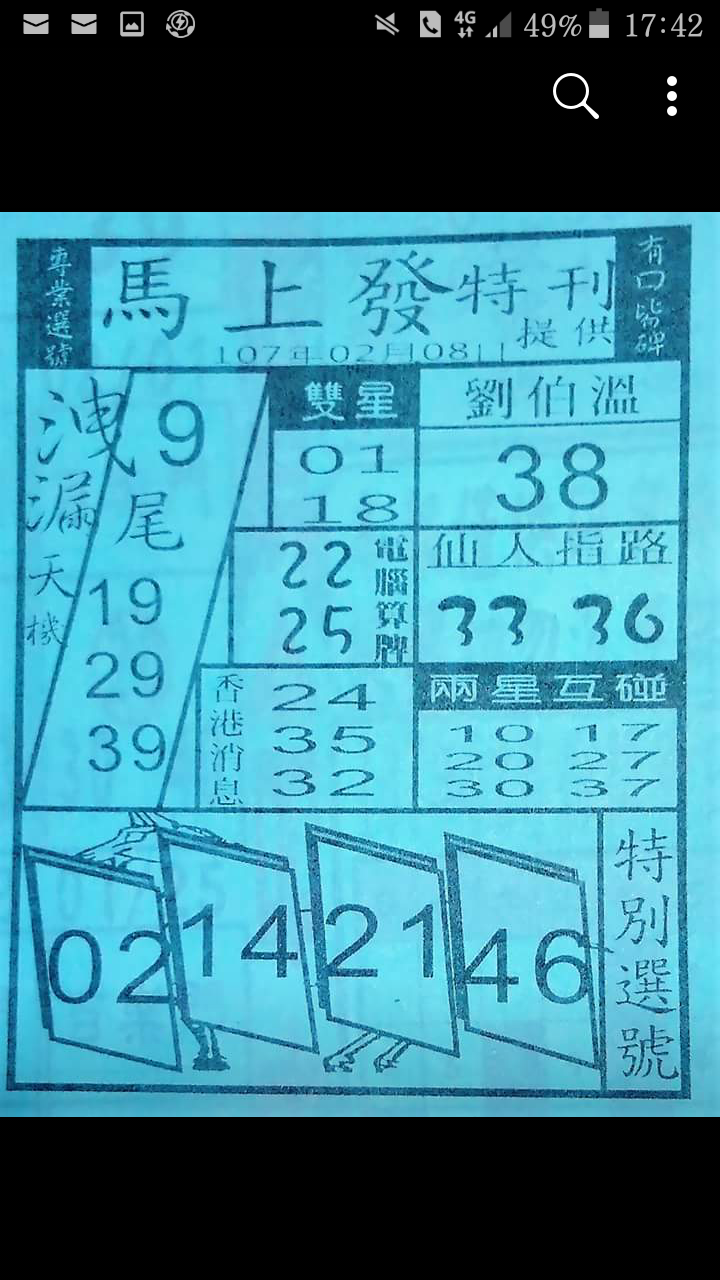 49% 17:42
4G
專業選號
馬上發特刊
提供
107年02月08日
有口皆碑
洩漏天機
9
尾
19
29
39
雙星
01
18
劉伯溫
38
22
25
電腦算牌
仙人指路
33 36
香港消息
24
35
32
兩星互碰
10 17
20 27
30 37
02 14 21 46
特別選號